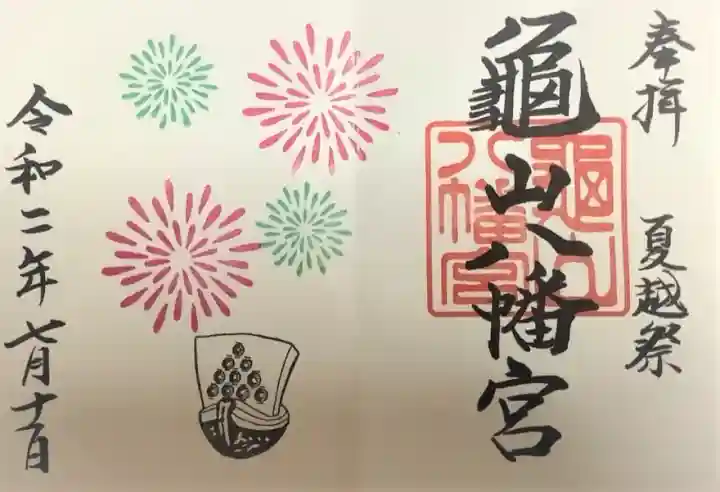 奉拝 夏越祭
龜山八幡宮
龜山
八幡宮
令和二年七月十一日